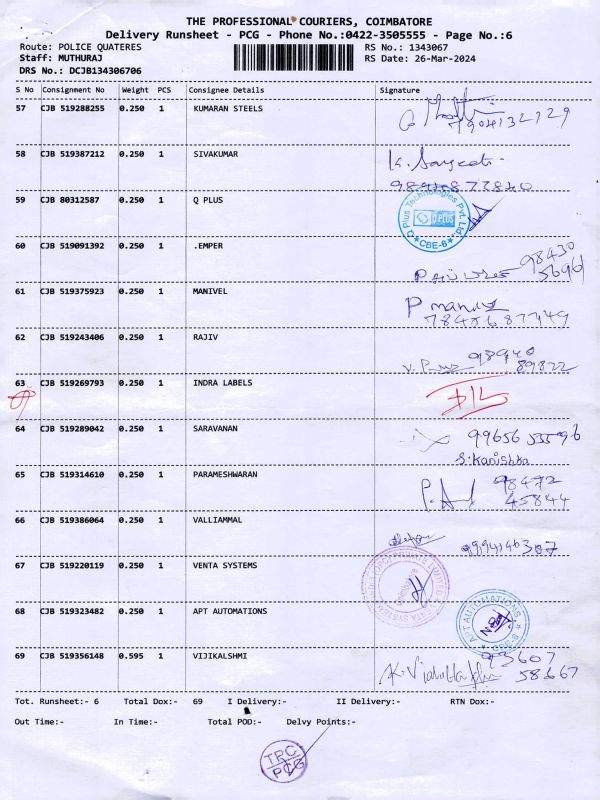 THE PROFESSIONAL COURIERS, COIMBATORE
Delivery Runsheet - PCG - Phone No.:0422-3505555 - Page No.:6
Route: POLICE QUATERES RS No.: 1343067
Staff: MUTHURAJ RS Date: 26-Mar-2024
DRS No.: DCJB134306706
S No Consignment No Weight PCS Consignee Details Signature
57 CJB 519288255 0.250 1 KUMARAN STEELS
58 CJB 519387212 0.250 1 SIVAKUMAR
59 CJB 80312587 0.250 1 Q PLUS
Q Plus Technologies Pvt. Ltd.
Q PLUS
CBE-6
60 CJB 519091392 0.250 1 .EMPER
98430
61 CJB 519375923 0.250 1 MANIVEL
62 CJB 519243406 0.250 1 RAJIV
98940
89822
63 CJB 519269793 0.250 1 INDRA LABELS
64 CJB 519289042 0.250 1 SARAVANAN
S. Kanishka
65 CJB 519314610 0.250 1 PARAMESHWARAN
98472
45844
66 CJB 519386064 0.250 1 VALLIAMMAL
67 CJB 519220119 0.250 1 VENTA SYSTEMS
68 CJB 519323482 0.250 1 APT AUTOMATIONS
APT AUTOMATIONS
CBE-6
69 CJB 519356148 0.595 1 VIJIKALSHMI
93607
58667
Tot. Runsheet:- 6 Total Dox:- 69 I Delivery:- II Delivery:- RTN Dox:-
Out Time:- In Time:- Total POD:- Delvy Points:-
TPC
PCG